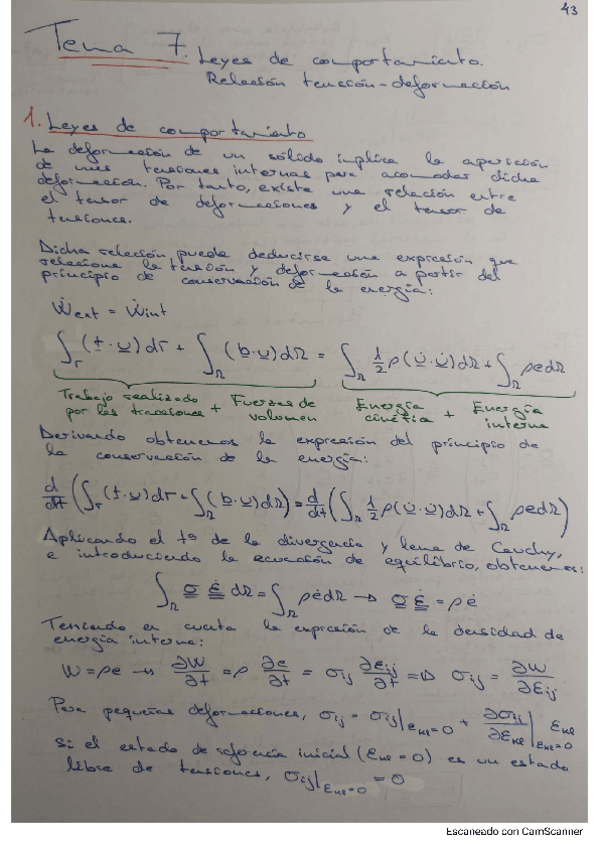 43
Tema 7. Leyes de comportamiento.
Relación tensión-deformación
1. Leyes de comportamiento
La deformación de un sólido implica la aparición
de unas tensiones internas para acomodar dicha
deformación. Por tanto, existe una relación entre
el tensor de deformaciones y el tensor de
tensiones.
Dicha relación puede deducirse una expresión que
relacione la tensión y deformación a partir del
principio de conservación de la energía:
Ẇext = Ẇint
∫Γ (t·u) dΓ + ∫Ω (b·u) dΩ = ∫Ω ½ρ(u̇·u̇) dΩ + ∫Ω ρe dΩ
Trabajo realizado por las tracciones + Fuerzas de volumen Energía cinética + Energía interna
Derivando obtenemos la expresión del principio de
la conservación de la energía:
d/dt (∫Γ (t·u) dΓ + ∫Ω (b·u) dΩ) = d/dt (∫Ω ½ρ(u̇·u̇) dΩ + ∫Ω ρe dΩ)
Aplicando el tª de la divergencia y lema de Cauchy,
e introduciendo la ecuación de equilibrio, obtenemos:
∫Ω σ ε̇ dΩ = ∫Ω ρė dΩ → σ ε̇ = ρė
Teniendo en cuenta la expresión de la densidad de
energía interna:
W = ρe → ∂W/∂t = ρ ∂e/∂t = σij ∂εij/∂t ⇒ σij = ∂W/∂εij
Para pequeñas deformaciones, σij = σij|εkl=0 + ∂σij/∂εkl|εkl=0 εkl
Si el estado de referencia inicial (εkl = 0) es un estado
libre de tensiones, σij|εkl=0 = 0
Escaneado con CamScanner